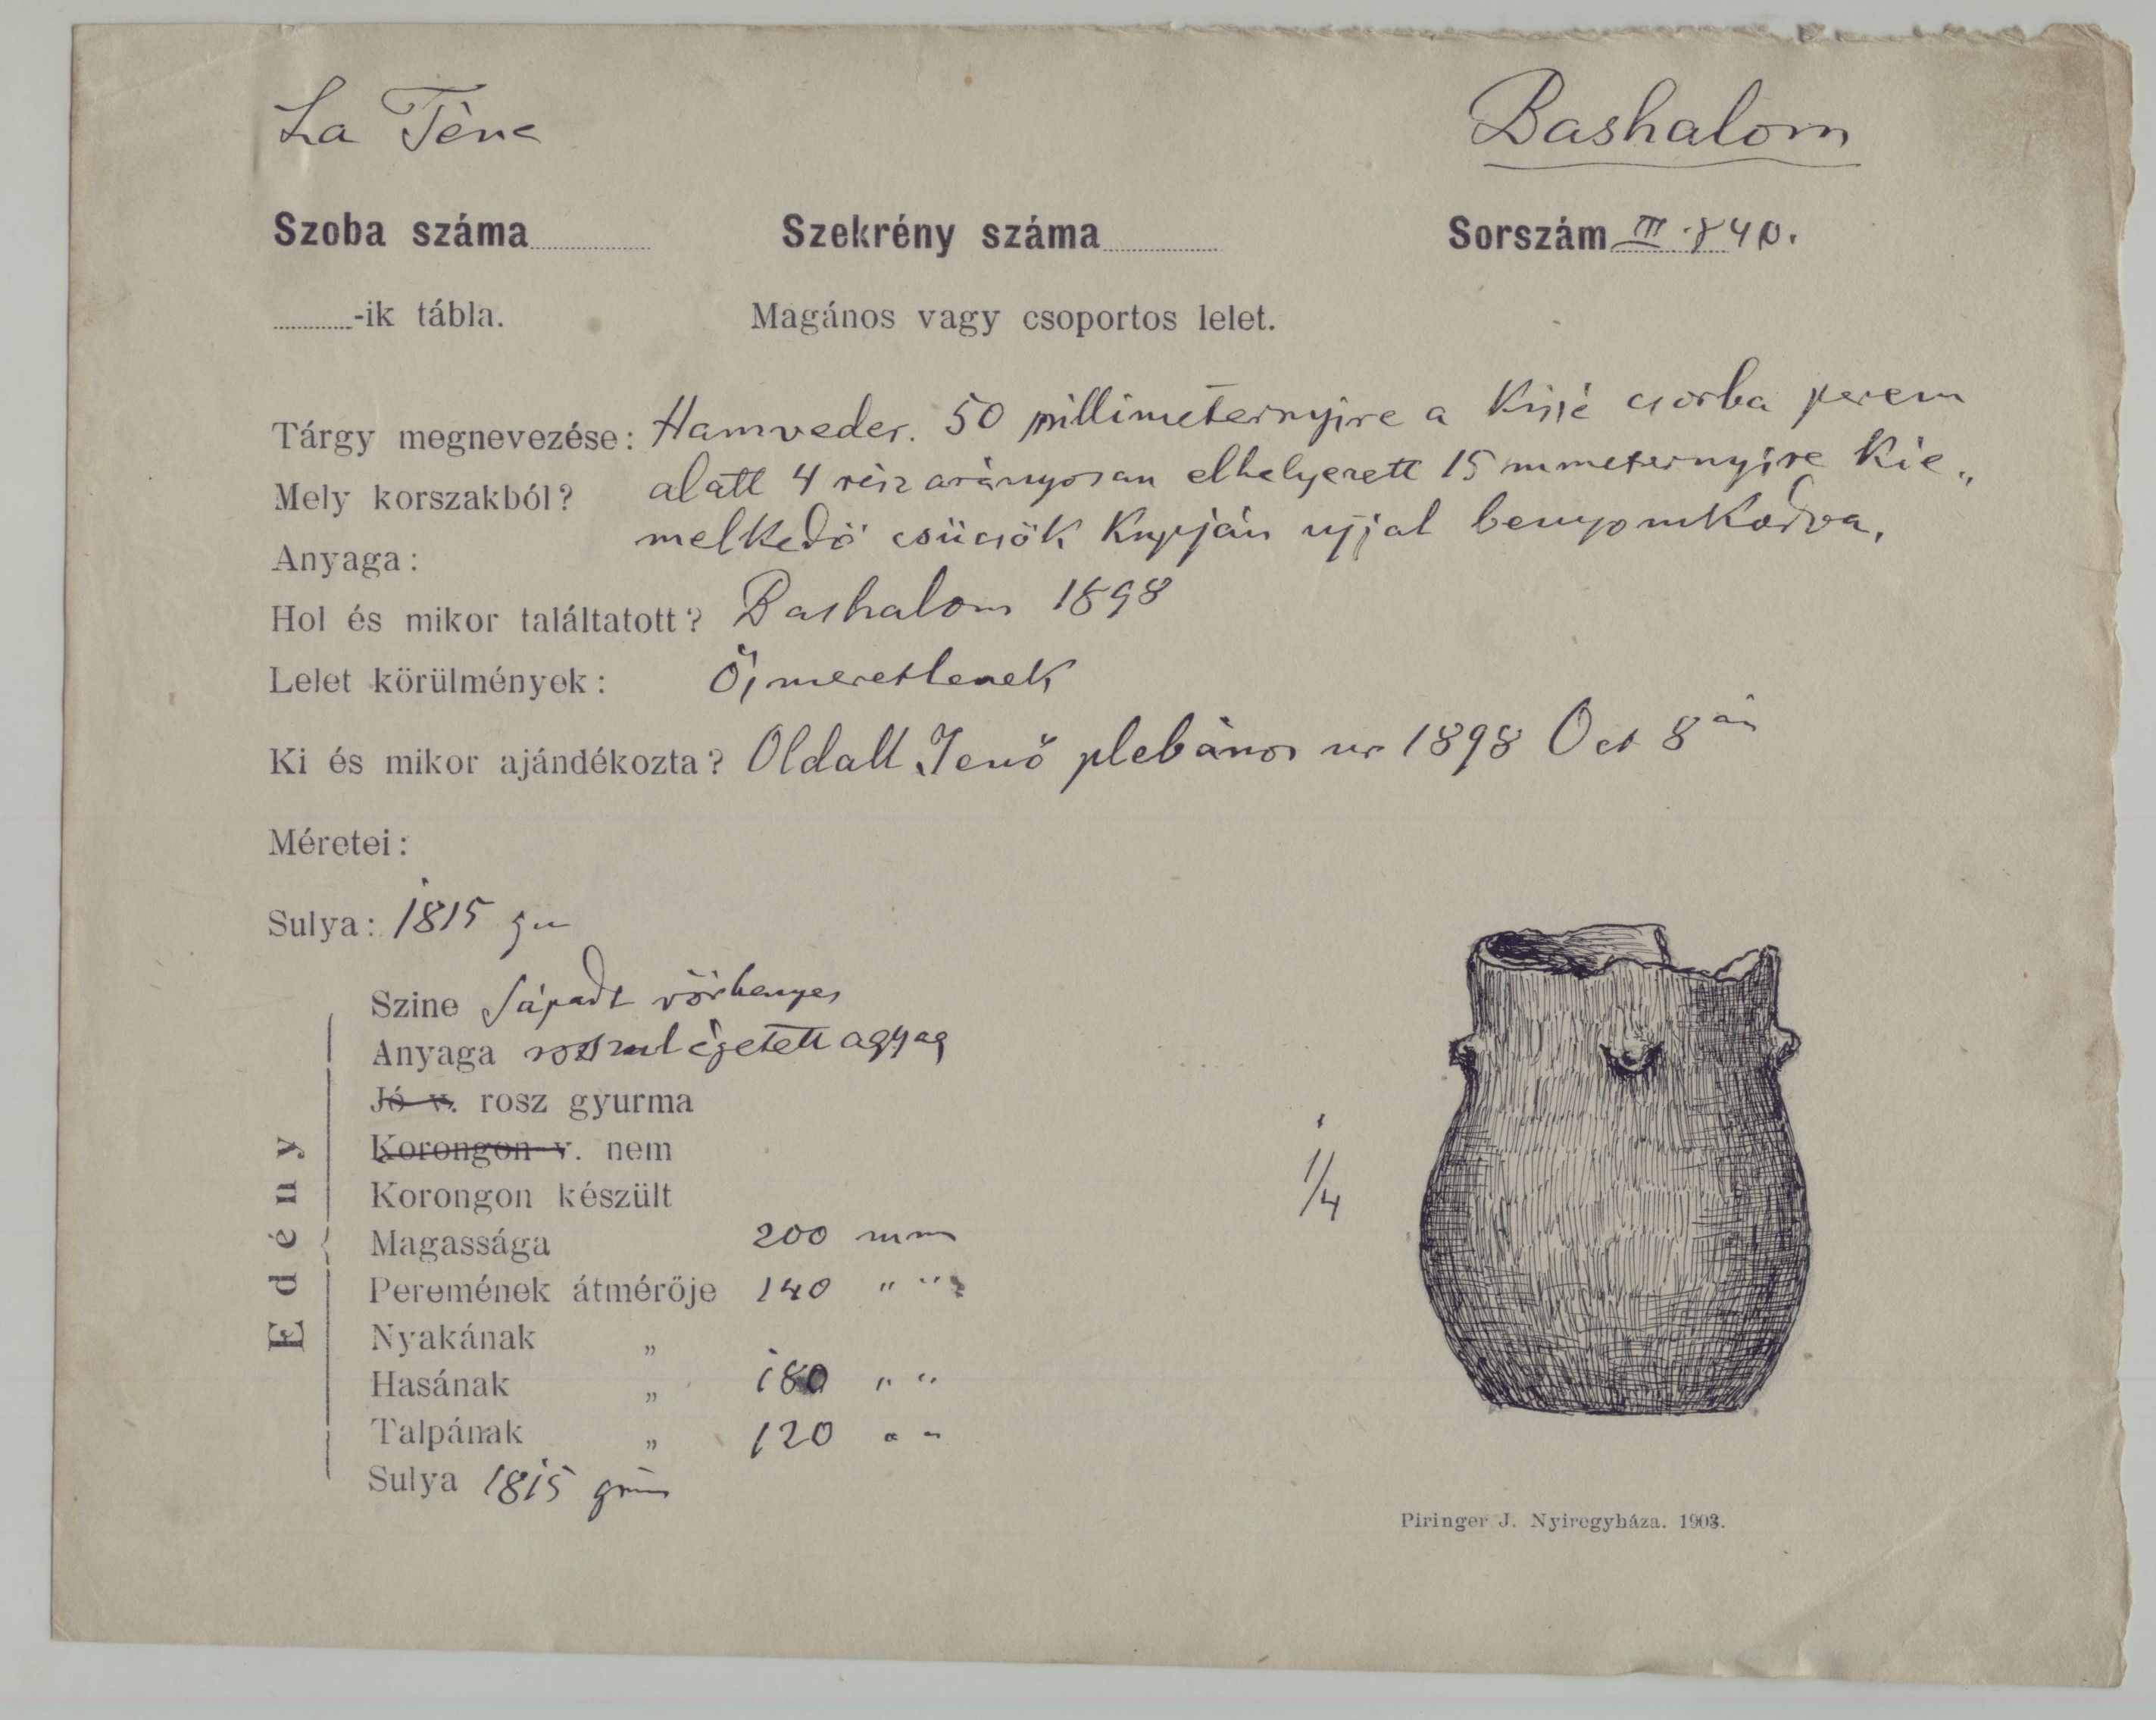 La Tène
Bashalom
Szoba száma
Szekrény száma
Sorszám III. 840.
-ik tábla.
Magános vagy csoportos lelet.
Tárgy megnevezése: Hamveder. 50 millimeternyire a Kissé csorba perem
Mely korszakból? alatt 4 rész arányosan elhelyezett 15 mmeternyire Kie„
melkedő csücsök Kupján ujjal benyomkodva.
Anyaga:
Hol és mikor találtatott? Bashalom 1898
Lelet körülmények: Ösmeretlenek
Ki és mikor ajándékozta? Oldalt Jenő plebános ur 1898 Oct 8 án
Méretei:
Sulya: 1815
Edény
Szine Sápadt vörhenyes
Anyaga rosszul égetett agyag
Jó v. rosz gyurma
Korongon v. nem
Korongon készült
Magassága 200 mm
Peremének átmérője 140 " "
Nyakának „
Hasának „ 180 " "
Talpának „ 120 " "
Sulya 1815 grm
1/4
Piringer J. Nyiregyháza. 1903.